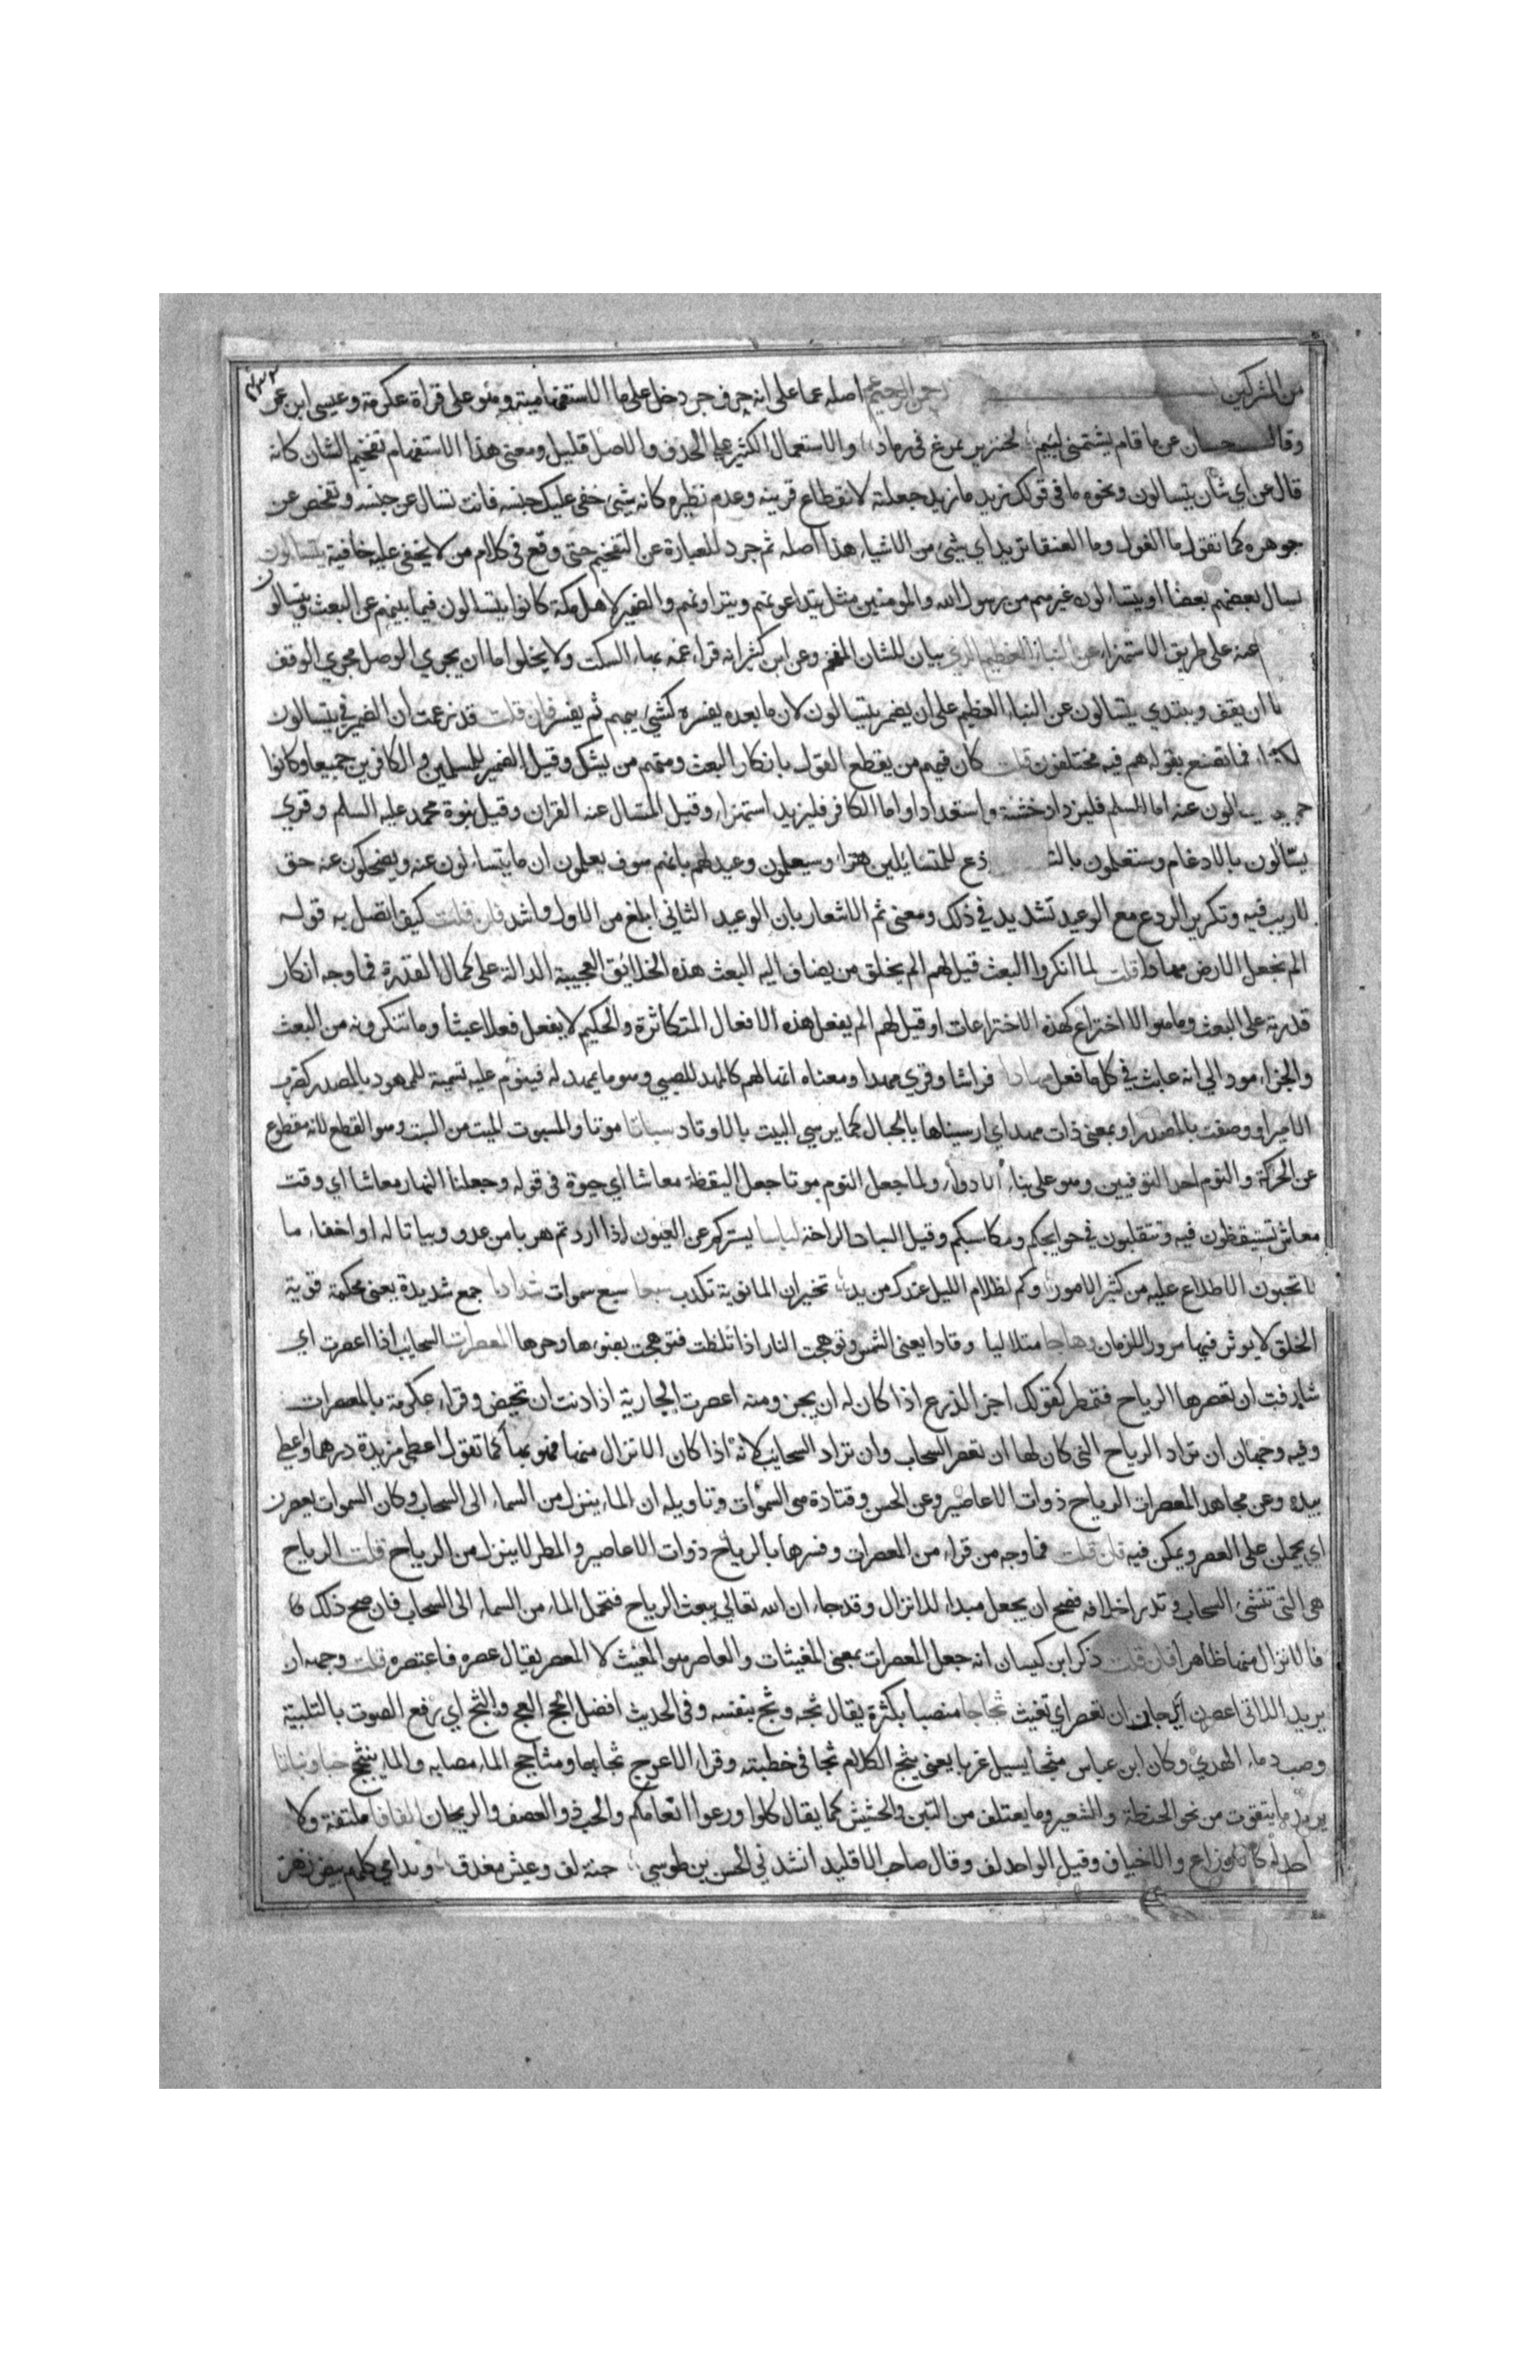 من المشركين الرحمن الرحيم عم اصله عما على انه حرف جر دخل على ما الاستفهامية وهو على قراة عكرمة وعيسى ابن عمر
وقال حسان عن ما قام يشتمني ليئم كخنزير تمرغ في رماد والاستعمال الكثير على الحذف والاصل قليل ومعنى هذا الاستفهام تفخيم الشان كانه
قال عن اي شأن يتسالون ونحوه ما في قولك زيد ما زيد جعلته لانقطاع قرينه وعدم نظيره كانه شئ خفى عليك جنسه فانت تسال عن جنسه وتفحص عن
جوهره كما تقول ما الغول وما العنقا تريد اي شئ من الاشياء هذا اصله ثم جرد للعبارة عن التفخيم حتى وقع في كلام من لا يخفى عليه خافية يتسالون
يسال بعضهم بعضا او يتساءلون غيرهم من رسول الله والمومنين مثل يتداعونهم ويتراونهم والضمير لاهل مكة كانوا يتسالون فيما بينهم عن البعث ويتسالون
عنه على طريق الاستهزاء عن النباء العظيم الذي بيان للشان المفخم وعن ابن كثير انه قراء عمه بهاء السكت ولا يخلوا اما ان يجري الوصل مجرى الوقف
اما ان يقف ويبتدي يتسالون عن النباء العظيم على ان يضمر يتسالون لان ما بعده يفسره كشئ يبهم ثم يفسر فان قلت قد زعمت ان الضمير في يتسالون
فما تصنع بقوله هم فيه مختلفون قلت كان فيهم من يقطع القول بانكار البعث ومنهم من يشك وقيل الضمير للمسلمين والكافرين جميعا وكانوا
يسالون عنه اما المسلم فليزداد خشئة واستعدادا واما الكافر فليزيد استهزاء وقيل المتسال عنه القران وقيل نبوة محمد عليه السلم وقري
يسّالون بالادغام وستعلمون بالتـ دع للمتسائلين هزاء وسيعلمون وعيد لهم بانهم سوف يعلمون ان ما يتساءلون عنه ويضحكون عنه حق
لاريب فيه وتكرير الردع مع الوعيد تشديد في ذلك ومعنى ثم الاشعار بان الوعيد الثاني ابلغ من الاول واشد فان قلت كيف اتصل به قوله
الم نجعل الارض مهادا قلت لما انكروا البعث قيل لهم الم يخلق من يضاف اليه البعث هذه الخلائق العجيبة الدالة على كمال القدرة فما وجه انكار
قدرته على البعث وما هو الا اختراع كهذه الاختراعات او قيل لهم الم يفعل هذه الافعال المتكاثرة والحكيم لا يفعل فعلا عبثا وما تنكرونه من البعث
والجزاء مود الي انه عابث في كل ما فعل مهادا فراشا وقري مهدا ومعناه انها لهم كالمهد للصبي وهو ما يمهد له فينوم عليه تسمية للممهود بالمصدر كضرب
الامير او وصفت بالمصدر او بمعنى ذات مهد اي ارسيناها بالجبال كما يرسي البيت بالاوتاد سباتا موتا والمسبوت الميت من السبت وهو القطع لانه مقطوع
عن الحركة والنوم احد التوفيين وهو على بناء الادواء ولما جعل النوم موتا جعل اليقظة معاشا اي حيوة في قوله وجعلنا النهار معاشا اي وقت
معاش تستيقظون فيه وتتقلبون في حوايجكم ومكاسبكم وقيل السبات الراحة لباسا يستركم عن العيون اذا اردتم هربا من عدو وبياتا له او اخفاء ما
لا تحبون الاطلاع عليه من كثير الامور وكم لظلام الليل عندك من يد تخبر ان المانوية تكذب سبعا سبع سموات شدادا جمع شديدة يعني محكمة قوية
الخلق لا يوثر فيها مرور الزمان وهاجا متلاليا وقادا يعني الشمس وتوهجت النار اذا تلظت فتوهجت بضوءها وحرها المعصرات السحايب اذا اعصرت اي
شارفت ان تعصرها الرياح فتمطر كقولك اجز الزرع اذا كان له ان يجز ومنه اعصرت الجارية اذا دنت ان تحيض وقراء عكرمة بالمعصرات
وفيه وجهان ان تراد الرياح التي كان لها ان تعصر السحاب وان تراد السحايب لانه اذا كان الانزال منها فهو بها كما تقول اعطى من يده درهما واعطى
بيده وعن مجاهد المعصرات الرياح ذوات الاعاصير وعن الحسن وقتادة هي السموات وتاويله ان الماء ينزل من السماء الى السحاب وكان السموات يعصرن
اي يحملن على العصر ويمكن فيه فان قلت فما وجه من قراء من المعصرات وفسرها بالرياح ذوات الاعاصير والمطر لا ينزل من الرياح قلت الرياح
هي التي تنشئ السحاب وتدر اخلافه فصح ان يجعل مبداء للانزال وقد جاء ان الله تعالي يبعث الرياح فتحمل الماء من السماء الى السحاب فان صح ذلك فا
فالانزال منها ظاهر فان قلت ذكر ابن كيسان انه جعل المعصرات بمعنى المغيثات والعاصر هو المغيث لا المعصر يقال عصره فاعتصره قلت وجهه ان
يريد اللاتي اعصرن اي حان ان تعصر اي تغيث ثجاجا منصبا بكثرة يقال ثجه وثج بنفسه وفي الحديث افضل الحج العج والثج اي رفع الصوت بالتلبية
وصب دماء الهدي وكان ابن عباس مثجا يسيل غربا يعني يثج الكلام ثجا في خطبته وقراء الاعرج ثجاجا ومثاجج الماء مصابه والماء ينثج حبا ونباتا
يريد ما يتقوت من نحو الحنطة والشعير وما يعتلف من التبن والحشيش كما يقال كلوا وارعوا انعامكم والحب ذو العصف والريحان الفافا ملتفة ولا
واحد له كالاوزاع والاخياف وقيل الواحد لف وقال صاحب الاقليد انشدني الحسن بن طوسي جنة لف وعيش مغدق وندامي كلهم بيض زهر